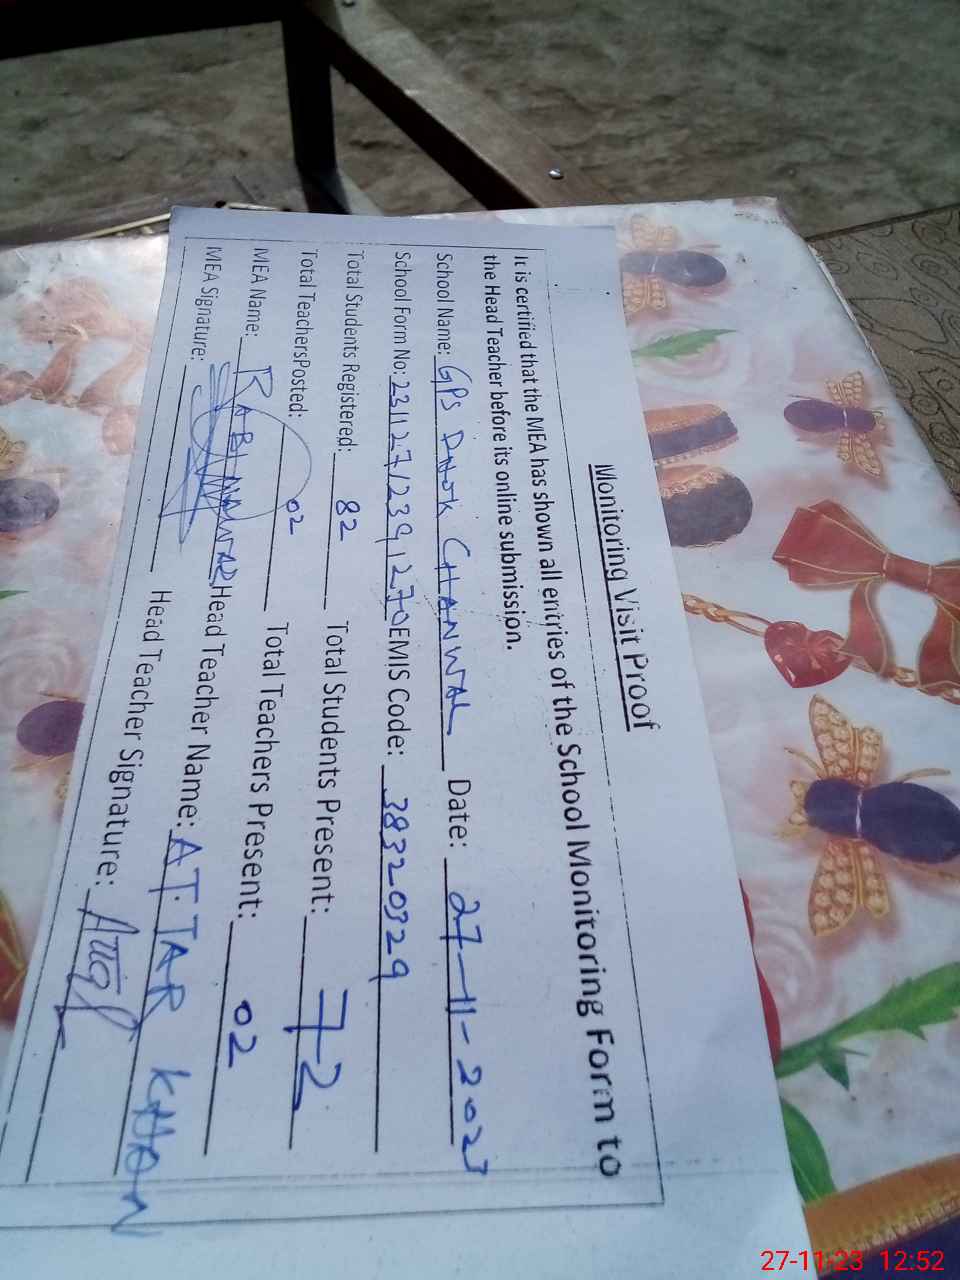 Monitoring Visit Proof
It is certified that the MEA has shown all entries of the School Monitoring Form to
the Head Teacher before its online submission.
School Name: GPS CHANWAL Date: 27-11-2023
School Form No: 23112712391270 EMIS Code: 38320329
Total Students Registered: 82 Total Students Present: 72
Total TeachersPosted: 02 Total Teachers Present: 02
MEA Name: RABNAWAZ Head Teacher Name: ATTAR KHAN
MEA Signature: Head Teacher Signature:
27-11-23 12:52